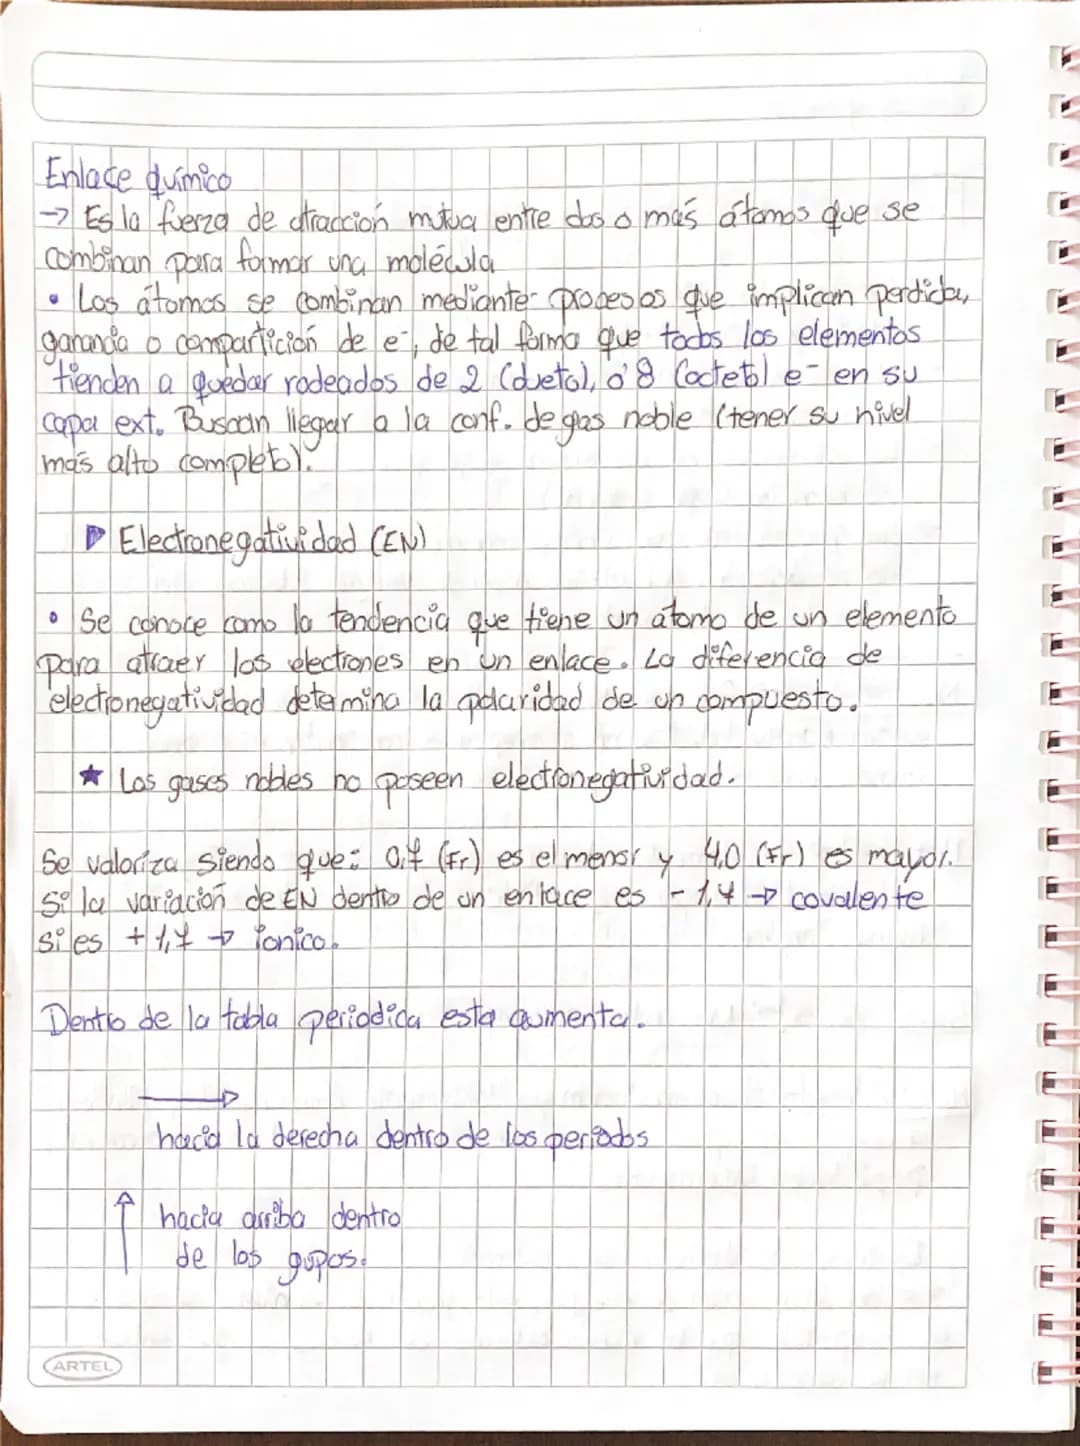 Enlace químico
→ Es la fuerza de atracción mutua entre dos o más átomos que se
combinan para formar una molécula
• Los átomos se combinan mediante procesos que implican perdida,
ganancia o compartición de e⁻, de tal forma que todos los elementos
tienden a quedar rodeados de 2 (dueto), ó 8 (octeto) e⁻ en su
capa ext. Buscan llegar a la conf. de gas noble (tener su nivel
más alto completo).
▷ Electronegatividad (EN)
• Se conoce como la tendencia que tiene un átomo de un elemento
para atraer los electrones en un enlace. La diferencia de
electronegatividad determina la polaridad de un compuesto.
★ Los gases nobles no poseen electronegatividad.
Se valoriza siendo que: 0,7 (Fr) es el menor y 4,0 (Fr) es mayor.
Si la variación de EN dentro de un enlace es - 1,7 → covalente
si es + 1,7 → ionico.
Dentro de la tabla periodica esta aumenta.
→
hacia la derecha dentro de los periodos
↑ hacia arriba dentro
de los gupos.
ARTEL